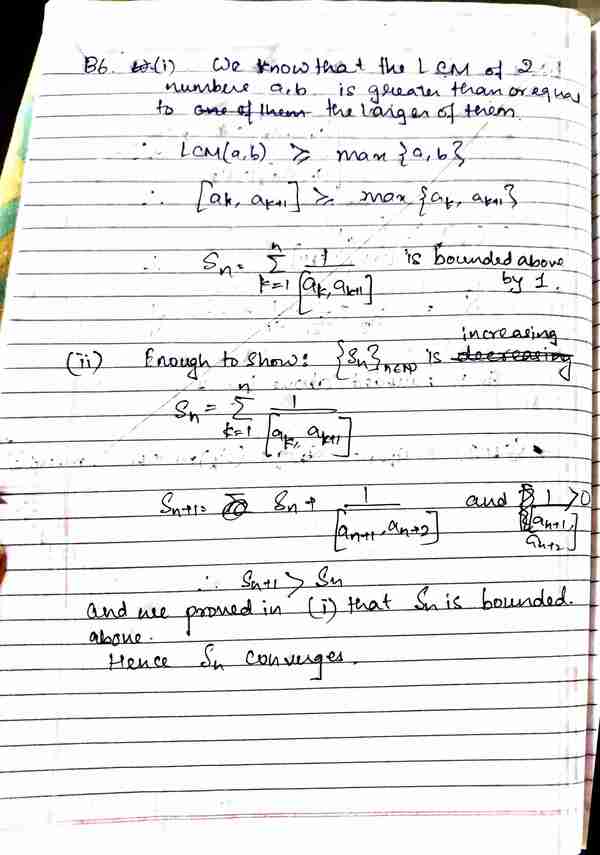 B6. (i) We know that the LCM of 2
numbers a,b is greater than or equal
to one of them the larger of them.
∴ LCM(a,b) ≥ max {a,b}
∴ [ak, ak+1] ≥ max {ak, ak+1}
∴ Sn = n∑k=1 1/[ak, ak+1] is bounded above
by 1.
increasing
(ii) Enough to show: {Sn}n∈ℕ is decreasing
Sn = n∑k=1 1/[ak, ak+1]
Sn+1 = Sn + 1/[an+1, an+2] and 1/[an+1, an+2] >0
∴ Sn+1 > Sn
and we proved in (i) that Sn is bounded
above.
Hence Sn converges.